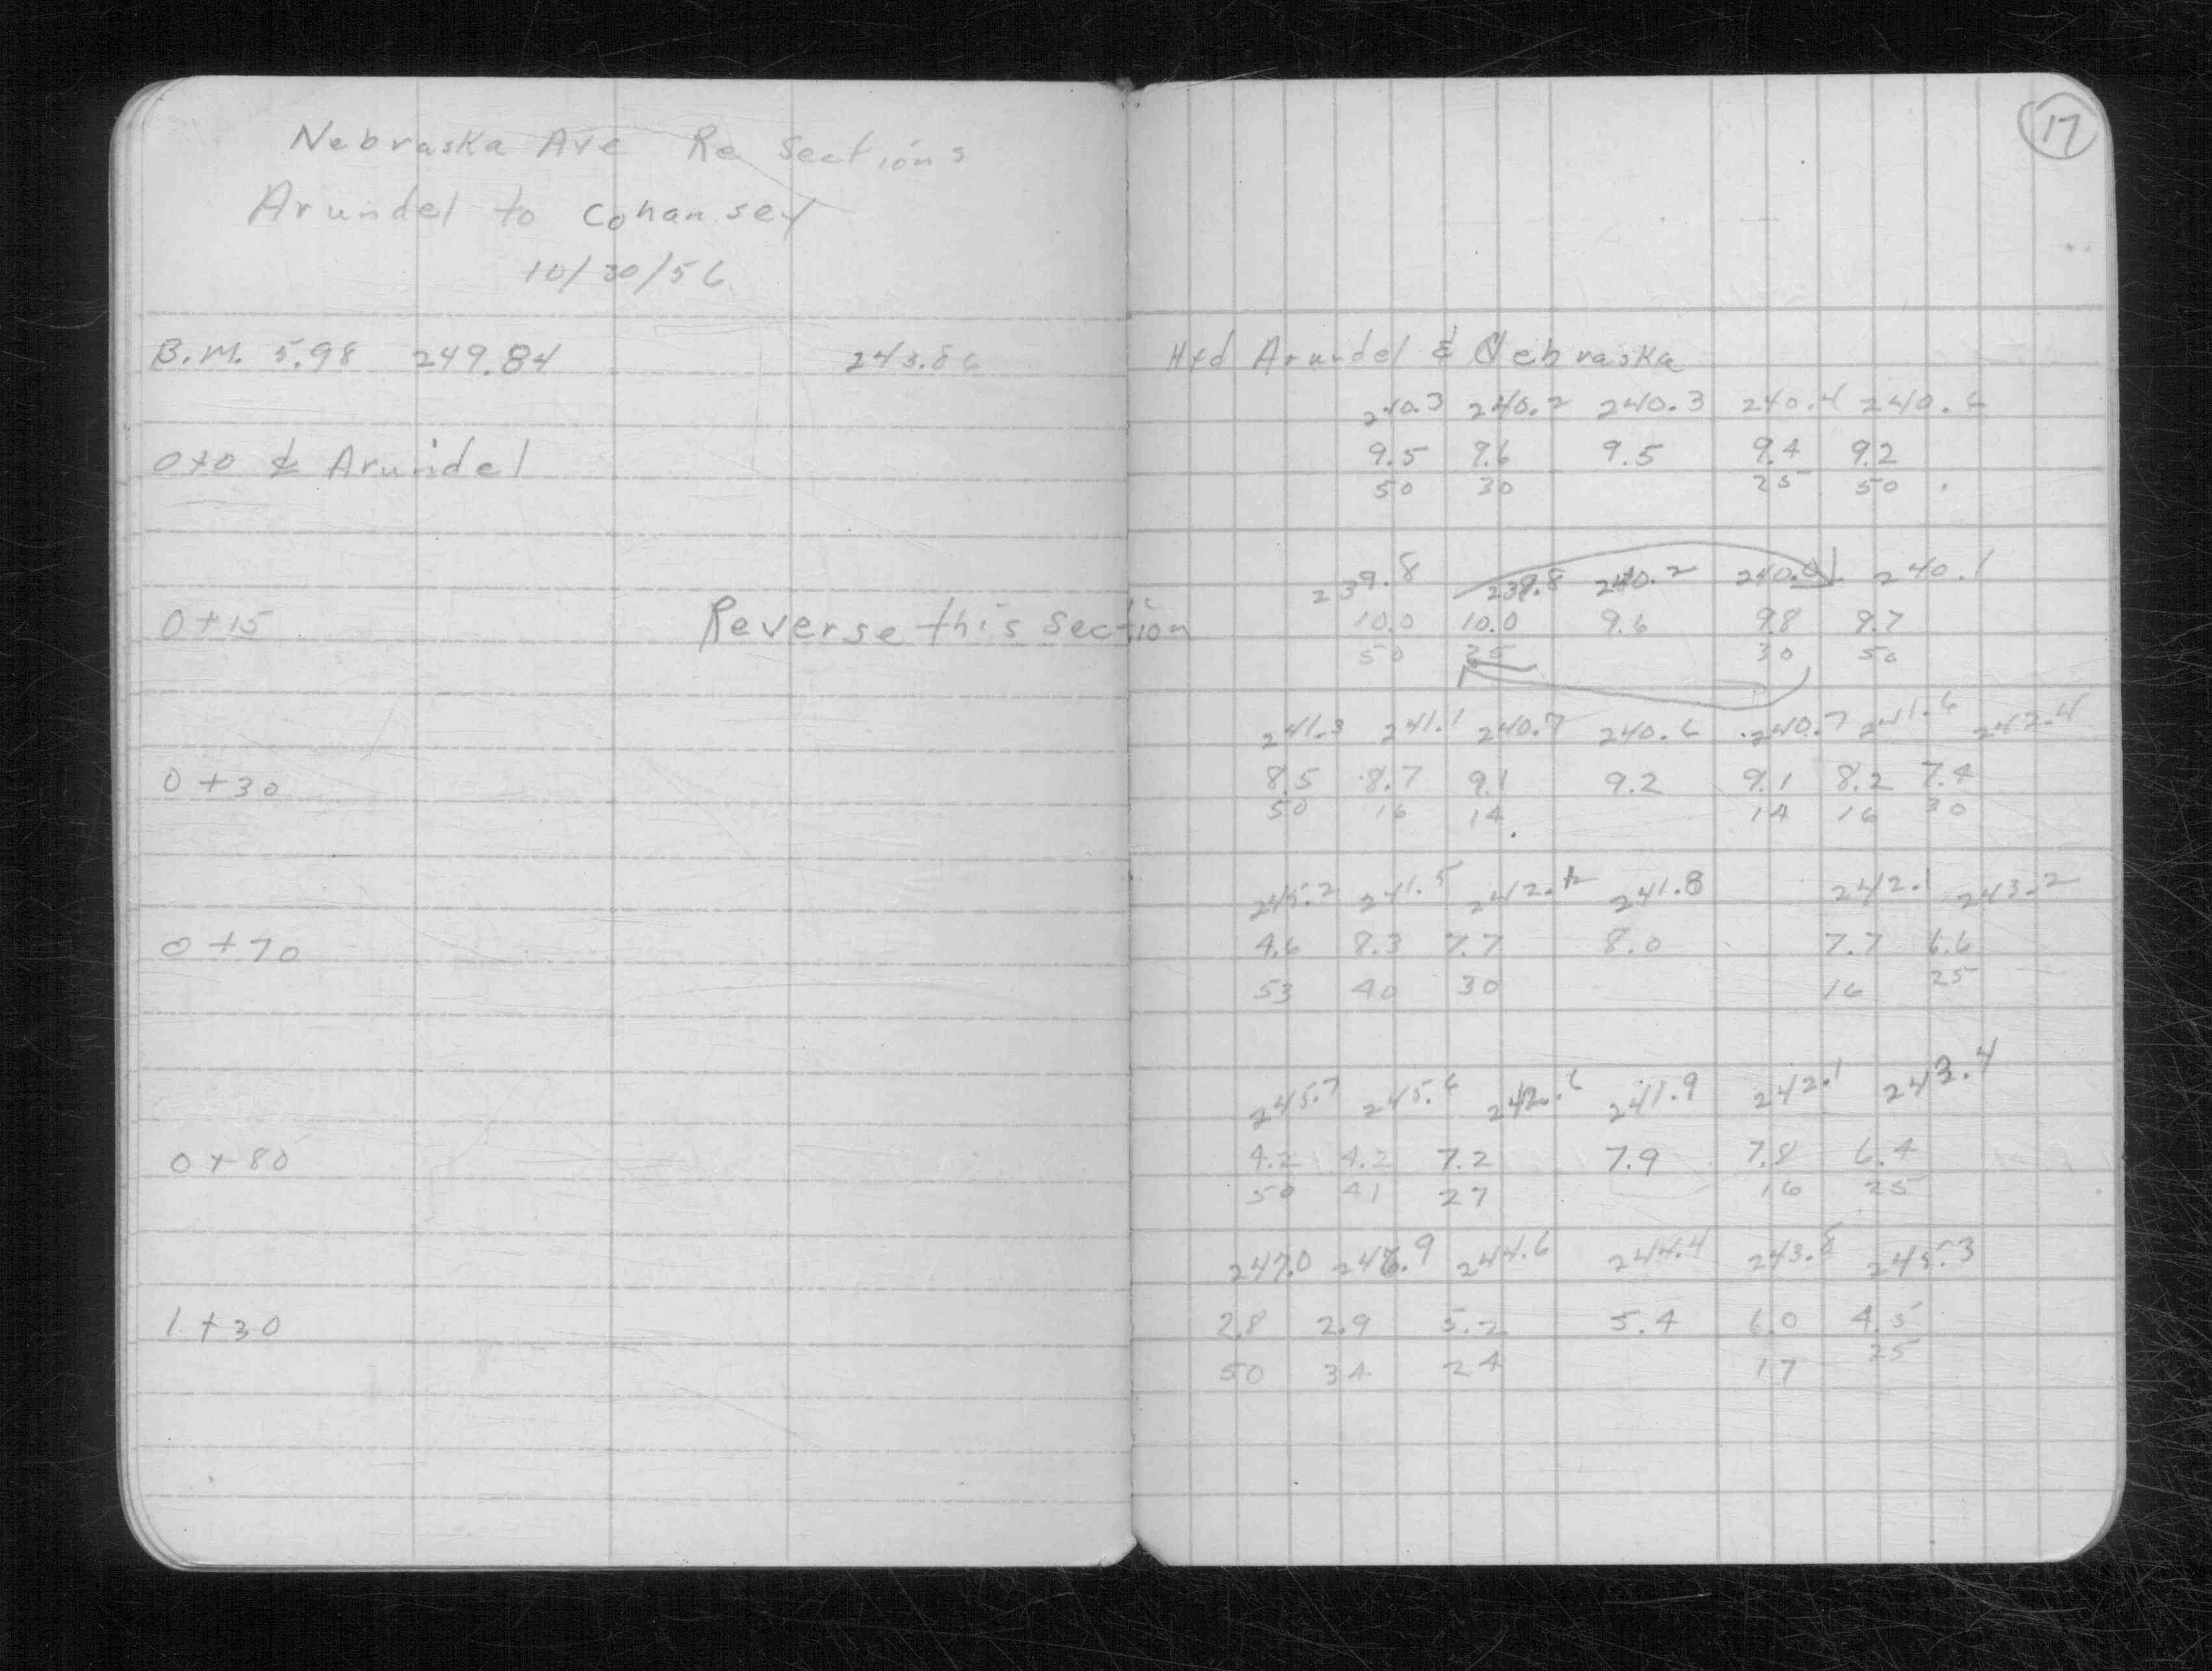 17
Nebraska Ave Re Sections
Arundel to Cohansey
10/30/56
B.M. 5.98 249.84 243.86 Hyd Arundel & Nebraska
240.3 240.2 240.3 240.4 240.6
0+0 ℄ Arundel 9.5 9.6 9.5 9.4 9.2
50 30 25 50
239.8 239.8 240.2 240.0 240.1
0+15 Reverse this section 10.0 10.0 9.6 9.8 9.7
50 25 30 50
241.3 241.1 240.7 240.6 240.7 241.6 242.4
0+30 8.5 8.7 9.1 9.2 9.1 8.2 7.4
50 16 14 14 16 30
245.2 241.5 241.8 242.1 243.2
0+70 4.6 8.3 7.7 8.0 7.7 6.6
53 40 30 16 25
245.7 245.6 242.6 241.9 242.1 243.4
0+80 4.2 4.2 7.2 7.9 7.8 6.4
50 41 27 16 25
247.0 246.9 244.6 244.4 243.8 245.3
1+30 2.8 2.9 5.2 5.4 6.0 4.5
50 34 24 17 25